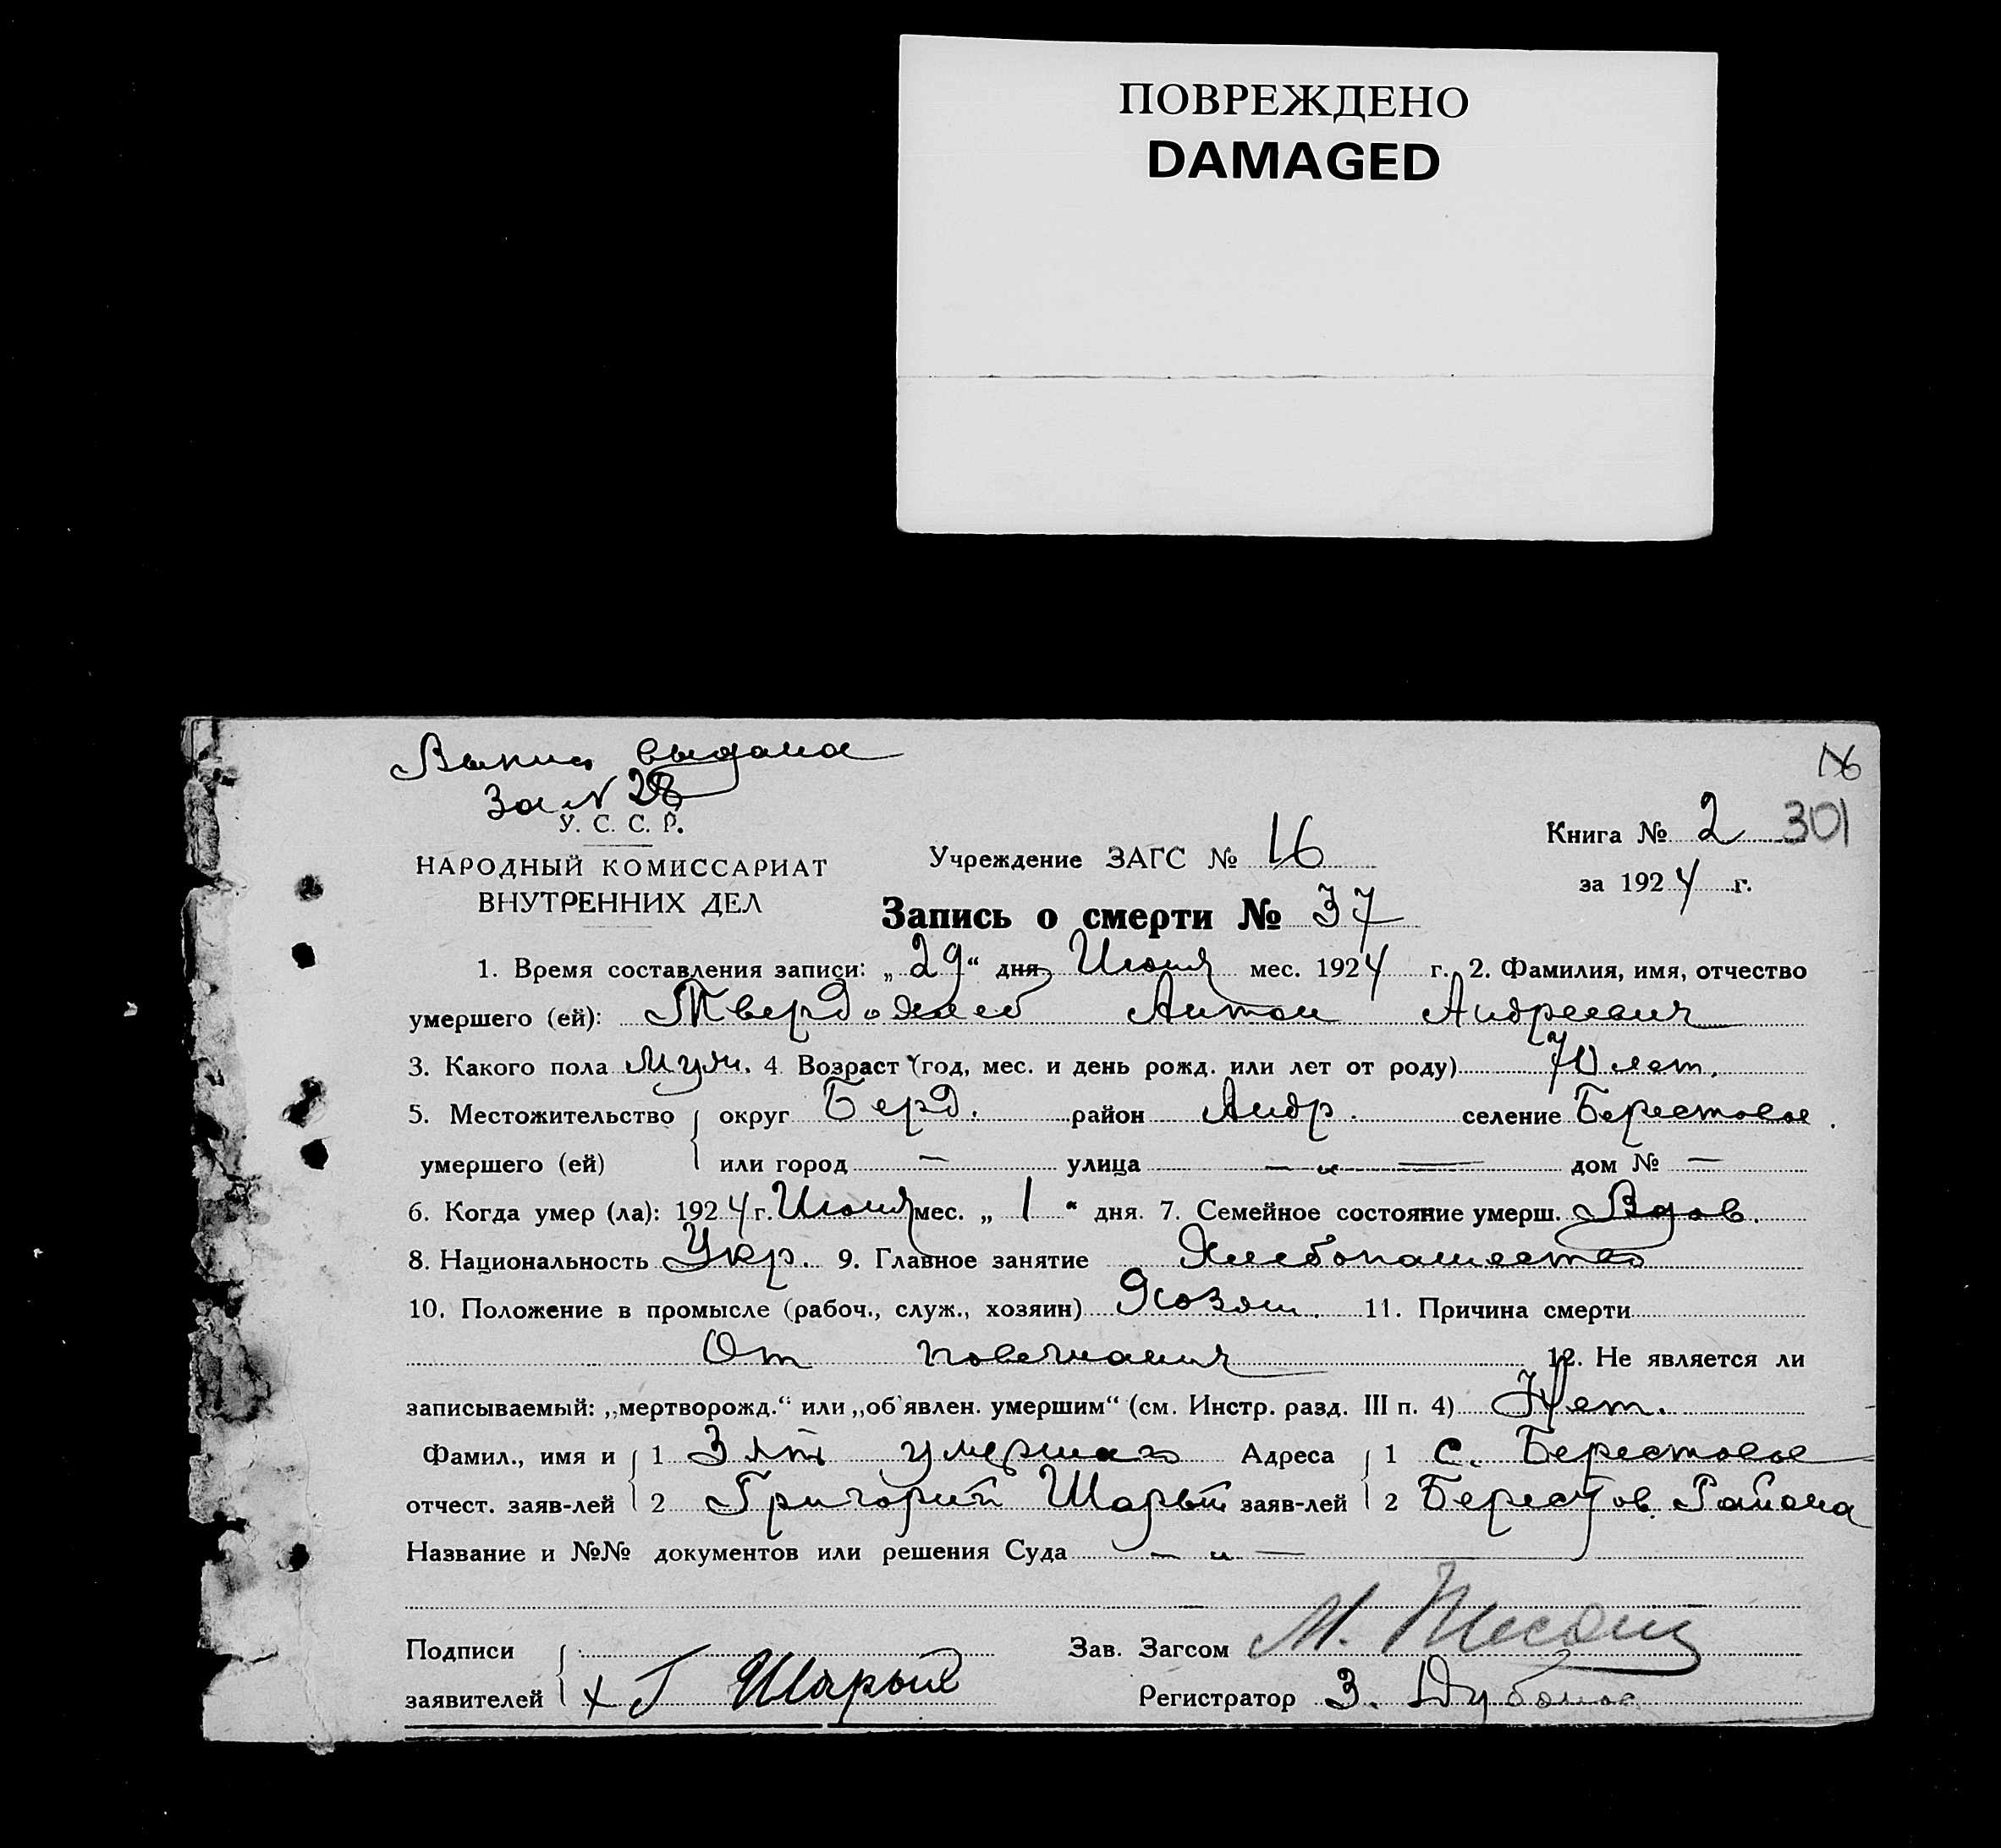 ПОВРЕЖДЕНО
DAMAGED
Выпис выдана
за № 28
16
У. С. С. Р.
Книга № 2 301
НАРОДНЫЙ КОМИССАРИАТ
ВНУТРЕННИХ ДЕЛ
Учреждение ЗАГС № 16
за 1924 г.
Запись о смерти № 37
1. Время составления записи: „29“ дня Июня мес. 1924 г. 2. Фамилия, имя, отчество
умершего (ей): Твердохлеб Антон Андреевич
3. Какого пола Муж. 4. Возраст (год, мес. и день рожд. или лет от роду) 70 лет.
5. Местожительство округ Берд. район Андр. селение Берестовое.
умершего (ей) или город — улица — „ — дом № —
6. Когда умер (ла): 1924 г. Июня мес. „1“ дня. 7. Семейное состояние умерш. Вдов.
8. Национальность Укр. 9. Главное занятие Хлебопашество
10. Положение в промысле (рабоч., служ., хозяин) Хозяин. 11. Причина смерти
От 12. Не является ли
записываемый: „мертворожд.“ или „об'явлен. умершим“ (см. Инстр. разд. III п. 4) Нет.
Фамил., имя и 1 Зять умершаго Адреса 1 с. Берестовое
отчест. заяв-лей 2 Григорий Шарый заяв-лей 2 Берестов. Района
Название и №№ документов или решения Суда — „ —
Подписи Зав. Загсом М.
заявителей + Г Шарый Регистратор З.